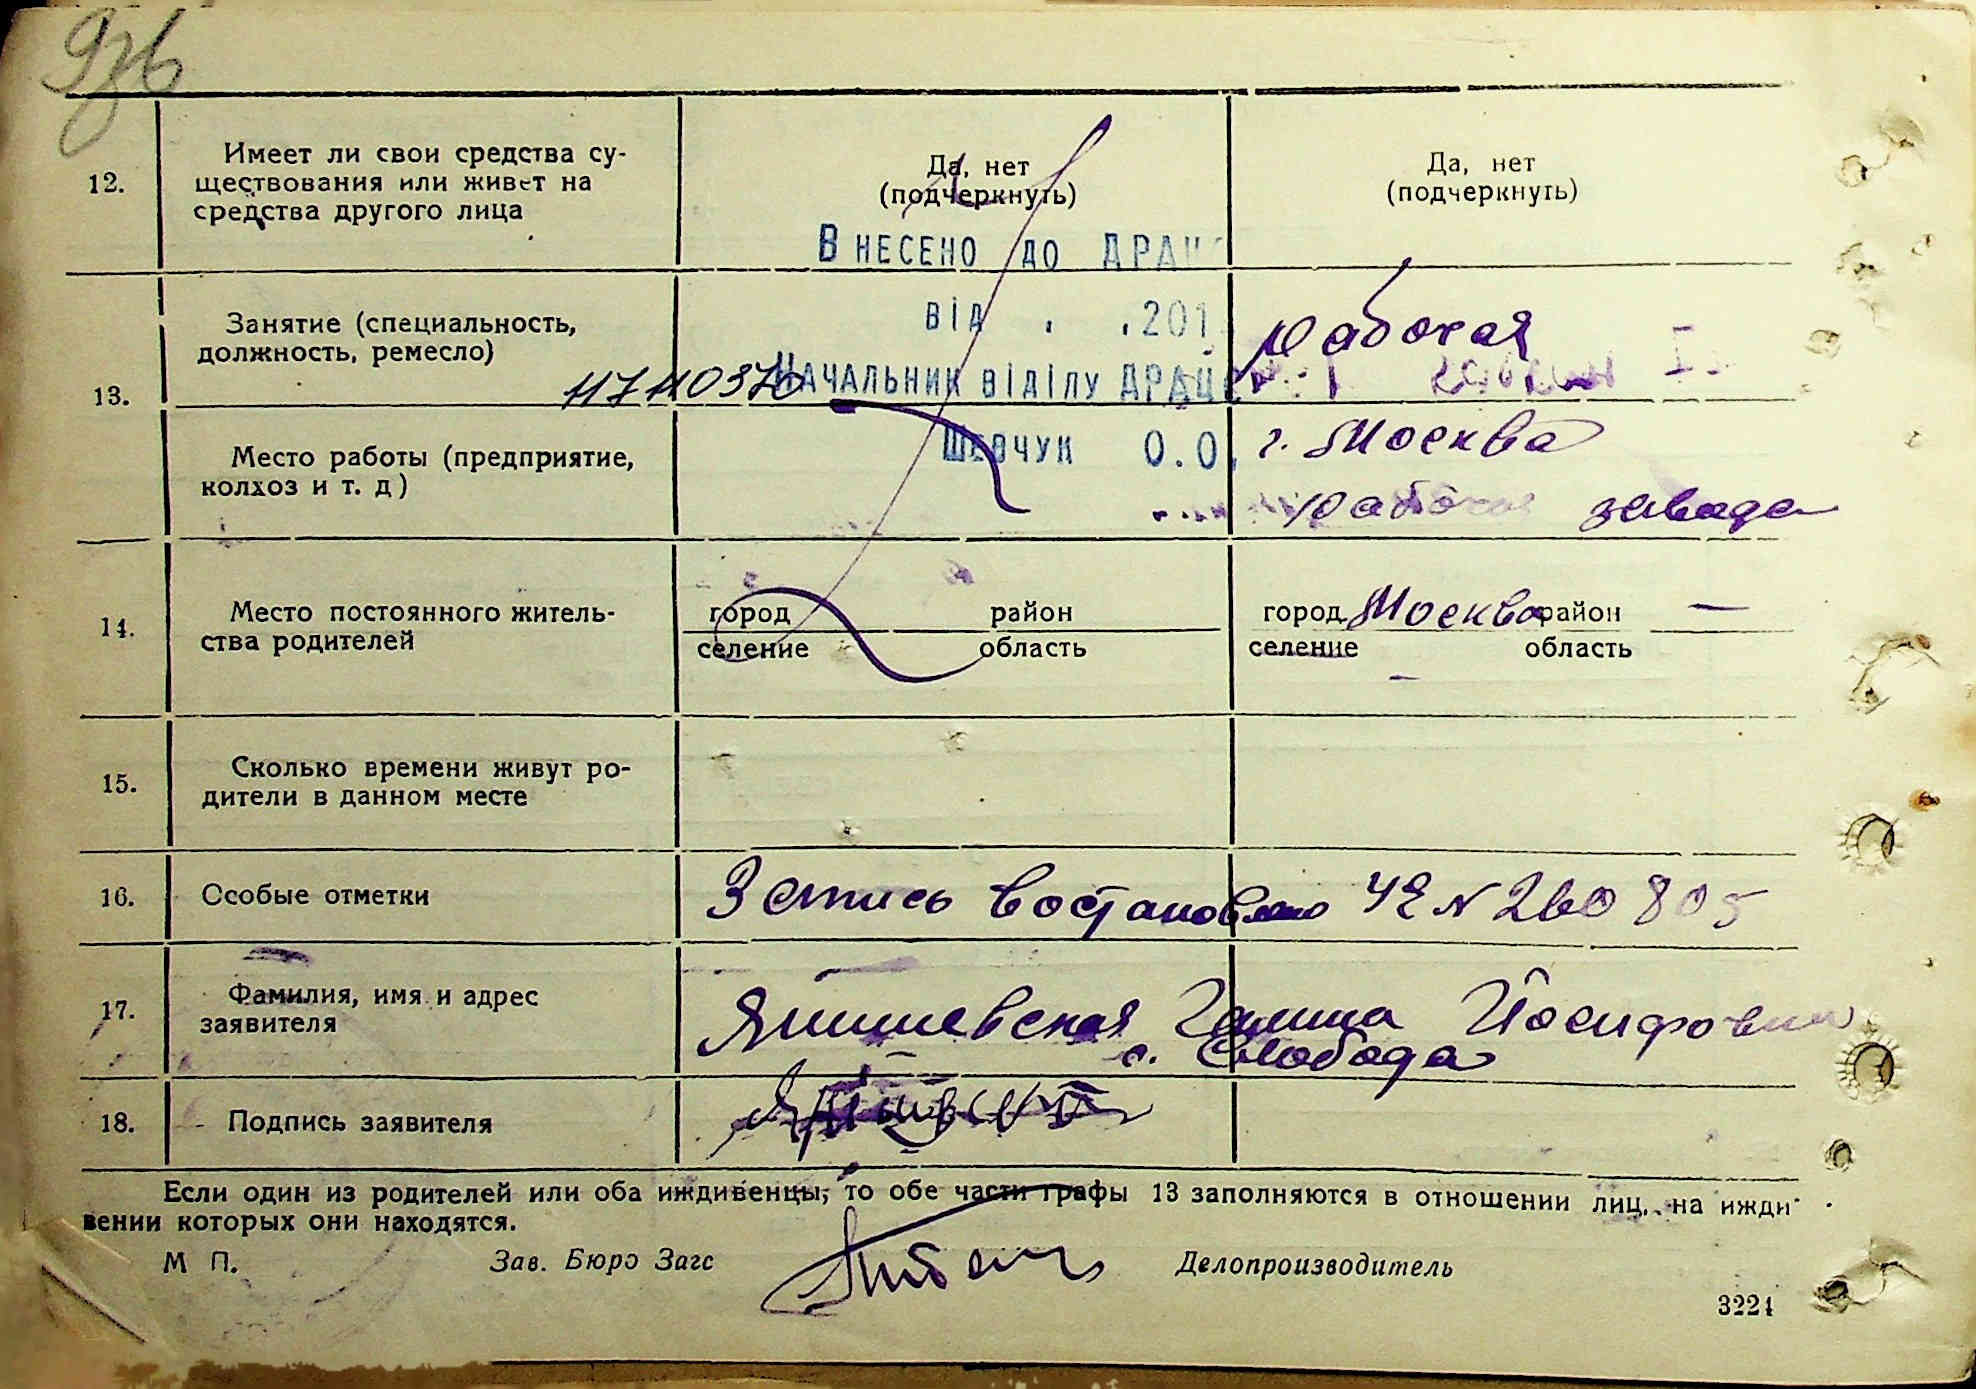 12.
Имеет ли свои средства су-
ществования или живет на
средства другого лица
Да, нет
(подчеркнуть)
Да, нет
(подчеркнуть)
ВНЕСЕНО ДО ДРАЦ
ВІД . .201
НАЧАЛЬНИК ВІДІЛУ ДРАЦС
ШЕВЧУК О.О.
13.
Занятие (специальность,
должность, ремесло)
рабочая
Место работы (предприятие,
колхоз и т. д)
г. Москва
рабочая завода
14.
Место постоянного житель-
ства родителей
город район
селение область
город Москва район —
селение область
—
15.
Сколько времени живут ро-
дители в данном месте
16.
Особые отметки
Запись востановлено ЧЕ N 260805
17.
Фамилия, имя и адрес
заявителя
Янишевская Галина Йосифовна
с. Слобода
18.
Подпись заявителя
Если один из родителей или оба иждивенцы, то обе части графы 13 заполняются в отношении лиц, на ижди-
вении которых они находятся.
М П.
Зав. Бюро Загс
Делопроизводитель
3224